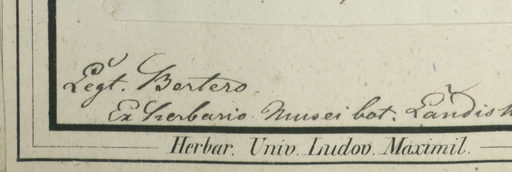 Legt. Bertero.
Ex Herbario Musei bot. Landish
Herbar. Univ. Ludov. Maximil.